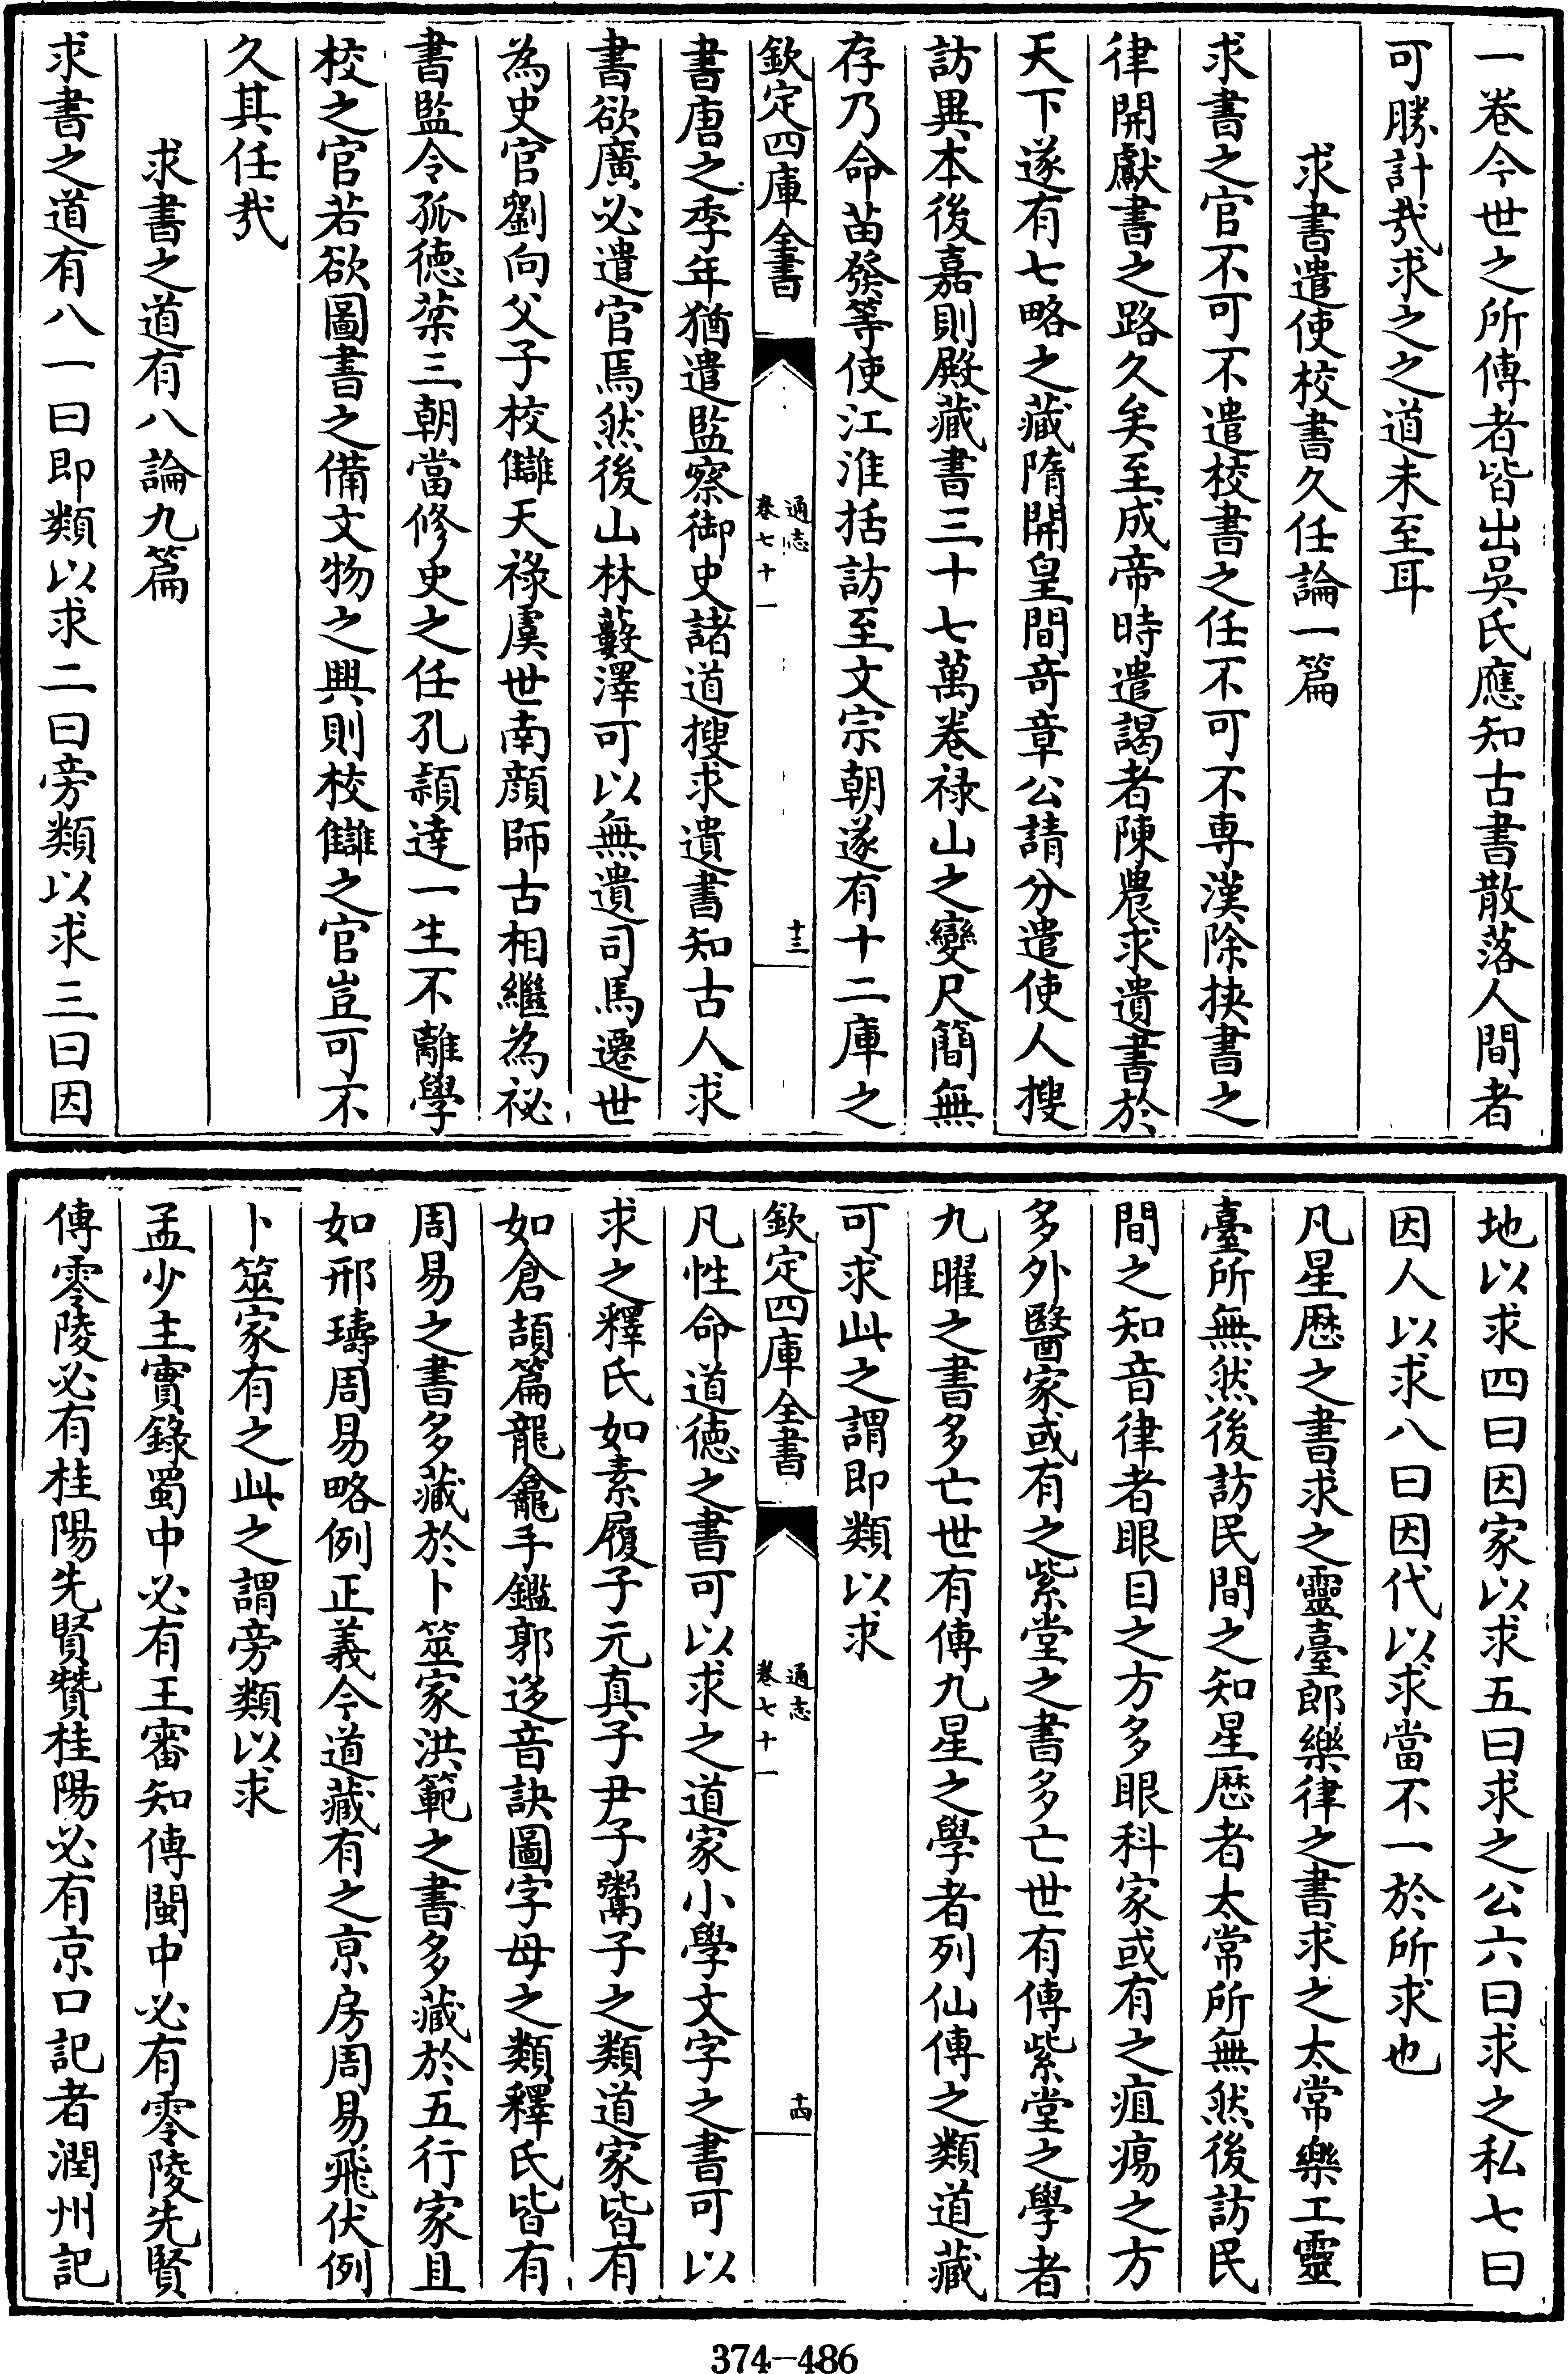 一巻今世之所傳者皆出吳氏應知古書散落人間者
可勝計㢤求之之道未至耳
求書遣使校書久任論一篇
求書之官不可不遣校書之任不可不専漢除挾書之
律開獻書之路久矣至成帝時遣謁者陳農求遺書於
天下遂有七略之藏隋開皇間竒章公請分遣使人搜
訪異本後嘉則殿藏書三十七萬巻禄山之變尺簡無
存乃命苗發等使江淮括訪至文宗朝遂有十二庫之
欽定四庫全書
通志
巻七十一
十三
書唐之季年猶遣監察御史諸道搜求遺書知古人求
書欲廣必遣官焉然後山林藪澤可以無遺司馬遷世
為史官劉向父子校讎天祿虞世南顔師古相繼為祕
書監令孤徳棻三朝當修史之任孔頴逹一生不離學
校之官若欲圖書之備文物之興則校讎之官豈可不
久其任㢤
求書之道有八論九篇
求書之道有八一曰即類以求二曰旁類以求三曰因
地以求四曰因家以求五曰求之公六曰求之私七曰
因人以求八曰因代以求當不一於所求也
凡星厯之書求之靈臺郎樂律之書求之太常樂工靈
臺所無然後訪民間之知星厯者太常所無然後訪民
間之知音律者眼目之方多眼科家或有之疽瘍之方
多外醫家或有之紫堂之書多亡世有傳紫堂之學者
九曜之書多亡世有傳九星之學者列仙傳之類道藏
可求此之謂即類以求
欽定四庫全書
通志
巻七十一
十四
凡性命道徳之書可以求之道家小學文字之書可以
求之釋氏如素履子元真子尹子鬻子之類道家皆有
如倉頡篇龍龕手鑑郭迻音訣圖字母之類釋氏皆有
周易之書多藏於卜筮家洪範之書多藏於五行家且
如邢璹周易略例正義今道藏有之京房周易飛伏例
卜筮家有之此之謂旁類以求
孟少主實錄蜀中必有王審知傳閩中必有零陵先賢
傳零陵必有桂陽先賢贊桂陽必有京口記者潤州記
374-486